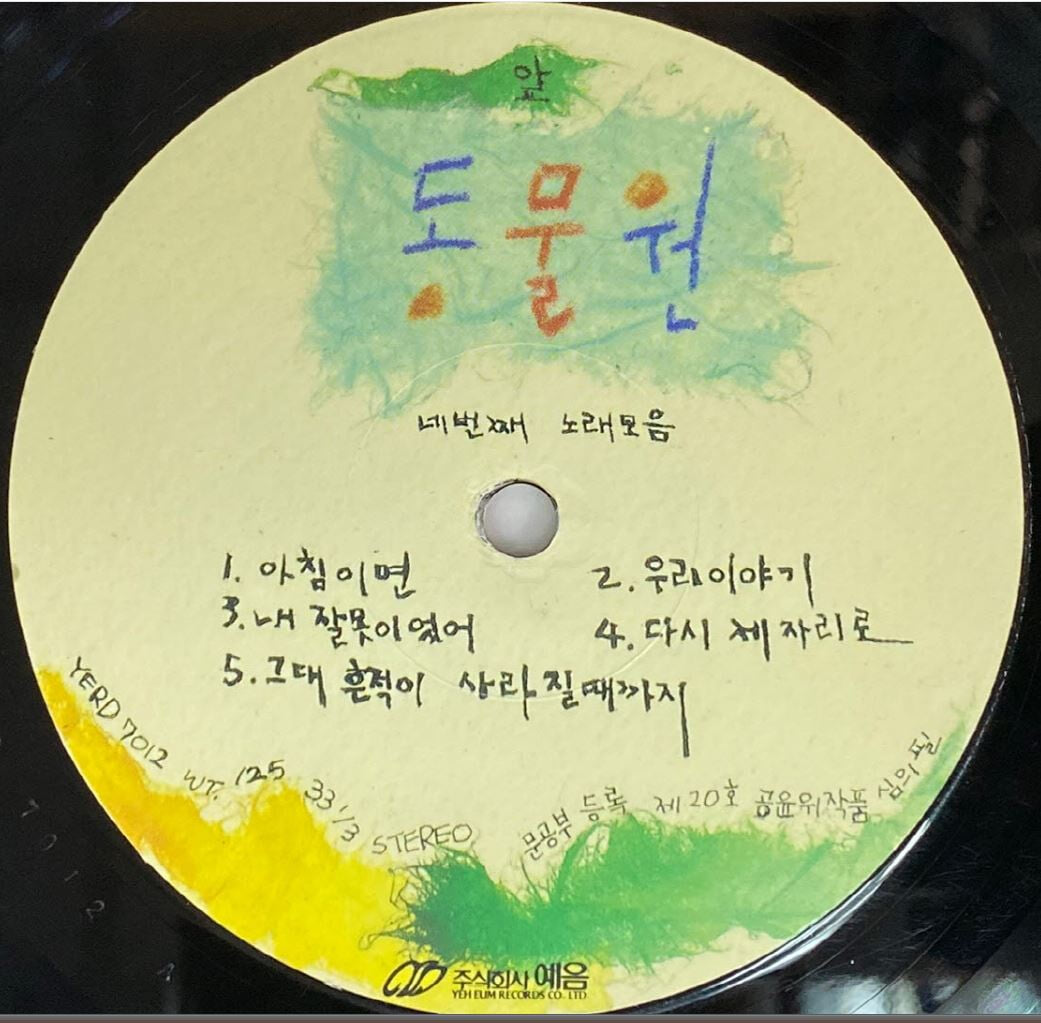 앞
동물원
네번째 노래모음
1. 아침이면 2. 우리이야기
3. 내 잘못이었어 4. 다시 제자리로
5. 그대 흔적이 사라질때까지
YERD 7012 WT. 125 33 1/3 STEREO 문공부 등록 제20호 공윤위작품 심의필
주식회사 예음
YEH EUM RECORDS CO. LTD
7012